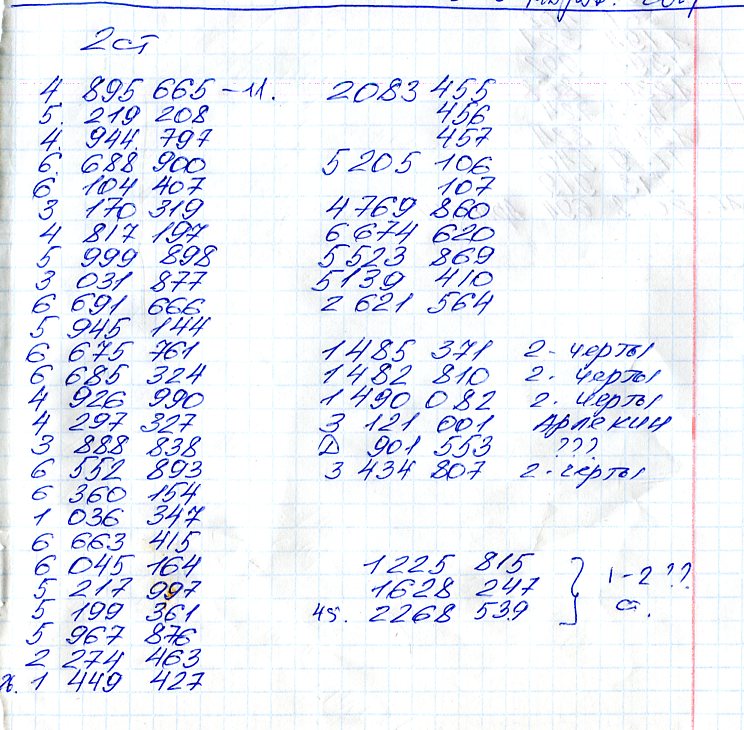 2ст
4 895 665 - 11.
5. 219 208
4. 944 797
6. 688 900
6 104 407
3 170 319
4 817 197
5 999 898
3 031 877
6 691 666
5 945 144
6 675 761
6 685 324
4 926 990
4 297 327
3 888 838
6 552 893
6 360 154
1 036 347
6 663 415
6 045 164
5 217 997
5 199 361
5 967 876
2 274 463
1 449 427
2083 455
456
457
5205 106
107
4769 860
6674 620
5523 869
5139 410
2 621 564
1485 371 2. черты
1482 810 2. черты
1490 082 2. черты
3 121 001 Арлекин
D 901 553 ???
3 434 807 2. черты
1225 815
1628 247
45. 2268 539
1-2 ??
ст.